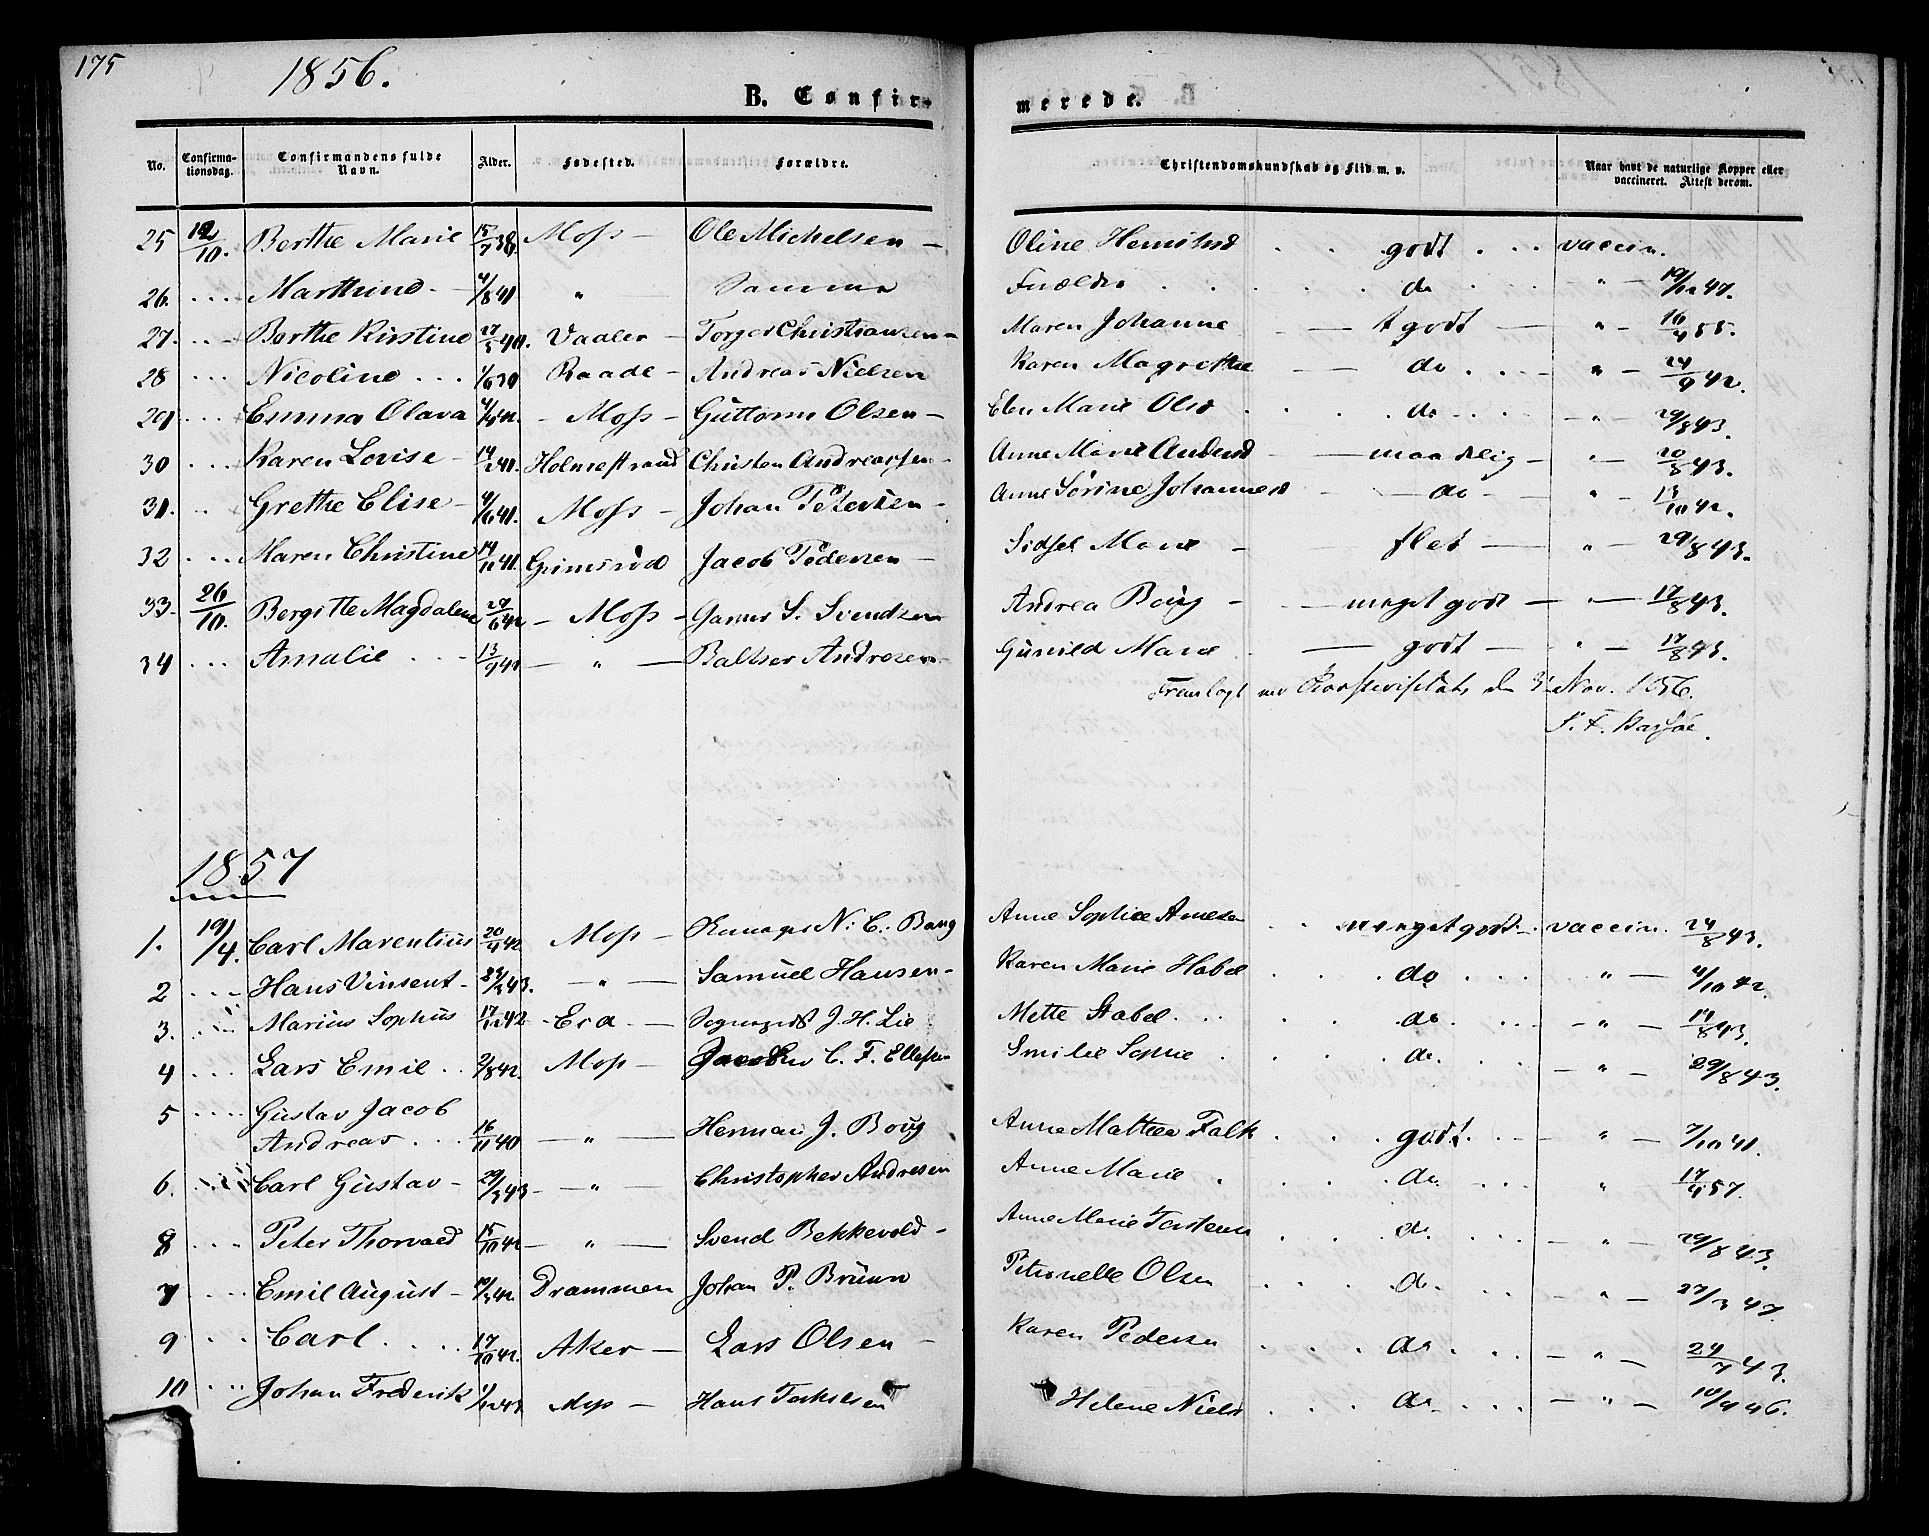 175
1856.
B. Confirmerede.
No. Confirmationsdag. Confirmandens fulde Navn. Alder. Fødested. Forældre. Christendomskundskab og Flid m. v. Naar havt de naturlige Kopper eller vaccineret. Attest derom.
25 12/10. Berthe Marie 15/7 38. Moss — Ole Michelsen — Oline . . godt . . . vaccin.
26. . . . Marthine — 4/8 41 " — Samme . . . . do . . — " — 19/12 47.
27. . . — Berthe Kirstine 27/3 40. Vaaler — Torger Christiansen — Maren Johanne — tgodt — " — 16/4 55.
28 . . . Nicoline . . . 1/6 39 Raade — Andreas Nielsen Karen Magrethe — do . . . — " — 24/9 42.
29 . . . Emma Olava — Moss — Guttorm Olsen — Marie Olsd . . . do . . . — " — 29/8 43.
30 . . . Karen Lovise — 14/2 41. Holmestrand Christen Andreassen — Anne Marie — maadelig — " — 20/8 43.
31. . . Grethe Elise — 4/6 41. Moss — Johan Petersen — Anne Sørine Johannesd — do — " — 13/10 42.
32 . . . Maren Christine 14/11 41. Grimsrød Jacob Pedersen — Sidsel Marie — flet — " — 29/8 43.
33. 26/10. Bergitte Magdalene 27/6 42 — Moss — S. Svendsen Andrea Boug — — meget godt — " — 17/8 43.
34 . . . Amalie . . — 13/9 41 — " — Baltser Andresen Gunild Marie . — godt — " — 17/8 43.
Fremlagt ved den Nov. 1856.
1857
1. 19/4. Carl Marentius 20/4 42 Moss — N: C: Boug Anne Sophie Arnesen — meget godt . vaccin. 24/8 43.
2 . . . — Hans Vinsent — 23/3 43. — " — Samuel Hansen — Karen Marie Habel . . . do . . . " — 4/10 42.
3. . . . Marius Sophus 17/12 42 Eid — J. H. Lie Mette Stabel . . . do . . . — " — 14/8 43.
4 . . . Lars Emil . . 2/8 42. Moss — C. F. Ellefsen Emilie Sophie . . . do . — " — 29/8 43.
5 . . . . Gustav Jacob
Andreas . . . 16/11 40 — " — Herman J. Boug Anne Mathea Falk . . . godt . . . — " — 7/10 41.
6. . . . Carl Gustav — 29/3 43 — " — Christopher Andresen Anne Marie . . . do. . . . " 17/4 57.
8 . . . Peter Thorvald 15/10 42 — " — Svend Bekkevold — Anne Marie . . . do. . . . — " — 29/8 43.
7 . . . . Emil August — 10/3 42. Drammen Johan P. Bruun Petronelle Olsen . . . do. . . — " — 27/3 47.
9 . . . Carl . . . . 17/10 42. Aker — Lars Olsen — Karen Pedersen . . . do . . . — " — 24/7 43.
10 . . . Johan Frederik Moss — Hans Helene Nielsd . . . do . . . — " — 10/4 46.